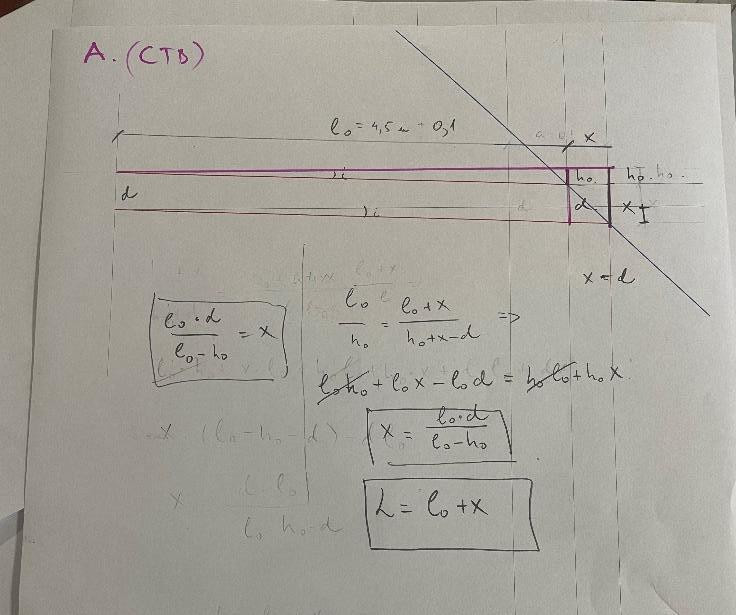 A. (CTB)
l₀ = 4,5 м ÷ 0,1
x
h₀. h₀. h₀.
d d x
x = d
l₀ · d / l₀ - h₀ = x
l₀ / h₀ = l₀ + x / h₀ + x - d ⇒
l₀h₀ + l₀x - l₀d = h₀l₀ + h₀x
x = l₀·d / l₀-h₀
x (l₀ - h₀ - d)
L = l₀ + x
x
l₀ h₀ - d